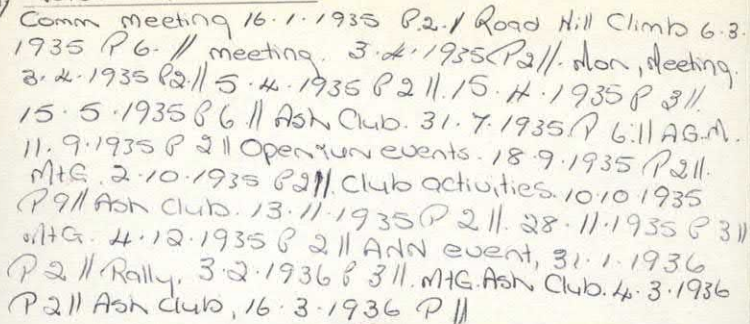 Comm meeting 16.1.1935 P.2.// Road Hill Climb 6.3.
1935 P 6.// meeting. 3.4.1935 P 2//. Mon, Meeting.
3.4.1935 P2.// 5.4.1935 P 2 //. 15.4.1935 P 3//.
15.5.1935 P 6 // Ash Club. 31.7.1935 P 6.// A.G.M.
11.9.1935 P 2 // Open run events. 18.9.1935 P 2//.
MtG. 2.10.1935 P2//. Club activities. 10.10.1935
P 9// Ash Club. 13.11.1935 P 2 //. 28.11.1935 P 3 //
MtG. 4.12.1935 P 2 // ANN event, 31.1.1936
P 2 // Rally. 3.2.1936 P 3 //. MtG. Ash Club. 4.3.1936
P 2 // Ash Club, 16.3.1936 P //